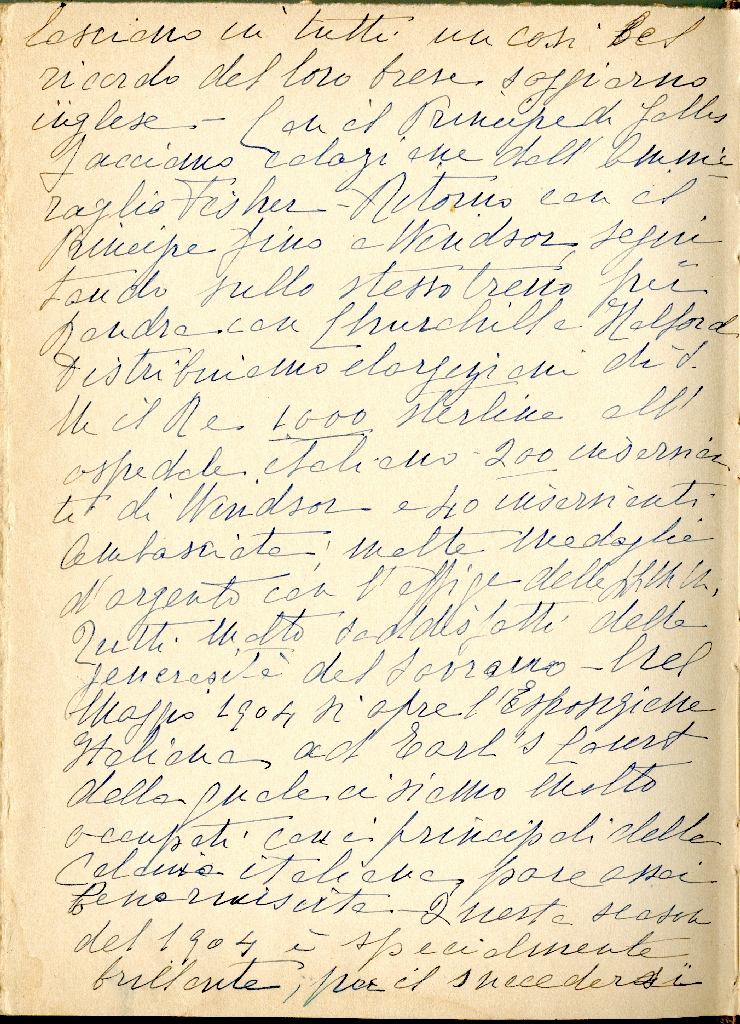 lasciano in tutti un così bel
ricordo del loro breve soggiorno
inglese - Con il Principe di Galles
facciamo colazione dall'Ammi-
raglio Fisher - Ritorno con il
Principe fino a Windsor, segui
tando sullo stesso treno fin
Londra con Churchill e Halford
Distribuiamo elargizioni di S.
M il Re 1000 sterline all'
ospedale italiano 200 inservien
ti di Windsor e 40 inservienti
Ambasciata; molte medaglie
d'argento con l'effige delle LL MM.
Tutti molto soddisfatti della
generosità del Sovrano - Nel
Maggio 1904 si apre l'Esposizione
Italiana ad Earl's Court
della quale ci siamo molto
occupati con i principali della
Colonia italiana, pare assai
ben riuscita - Questa season
del 1904 è specialmente
brillante, per il succedersi